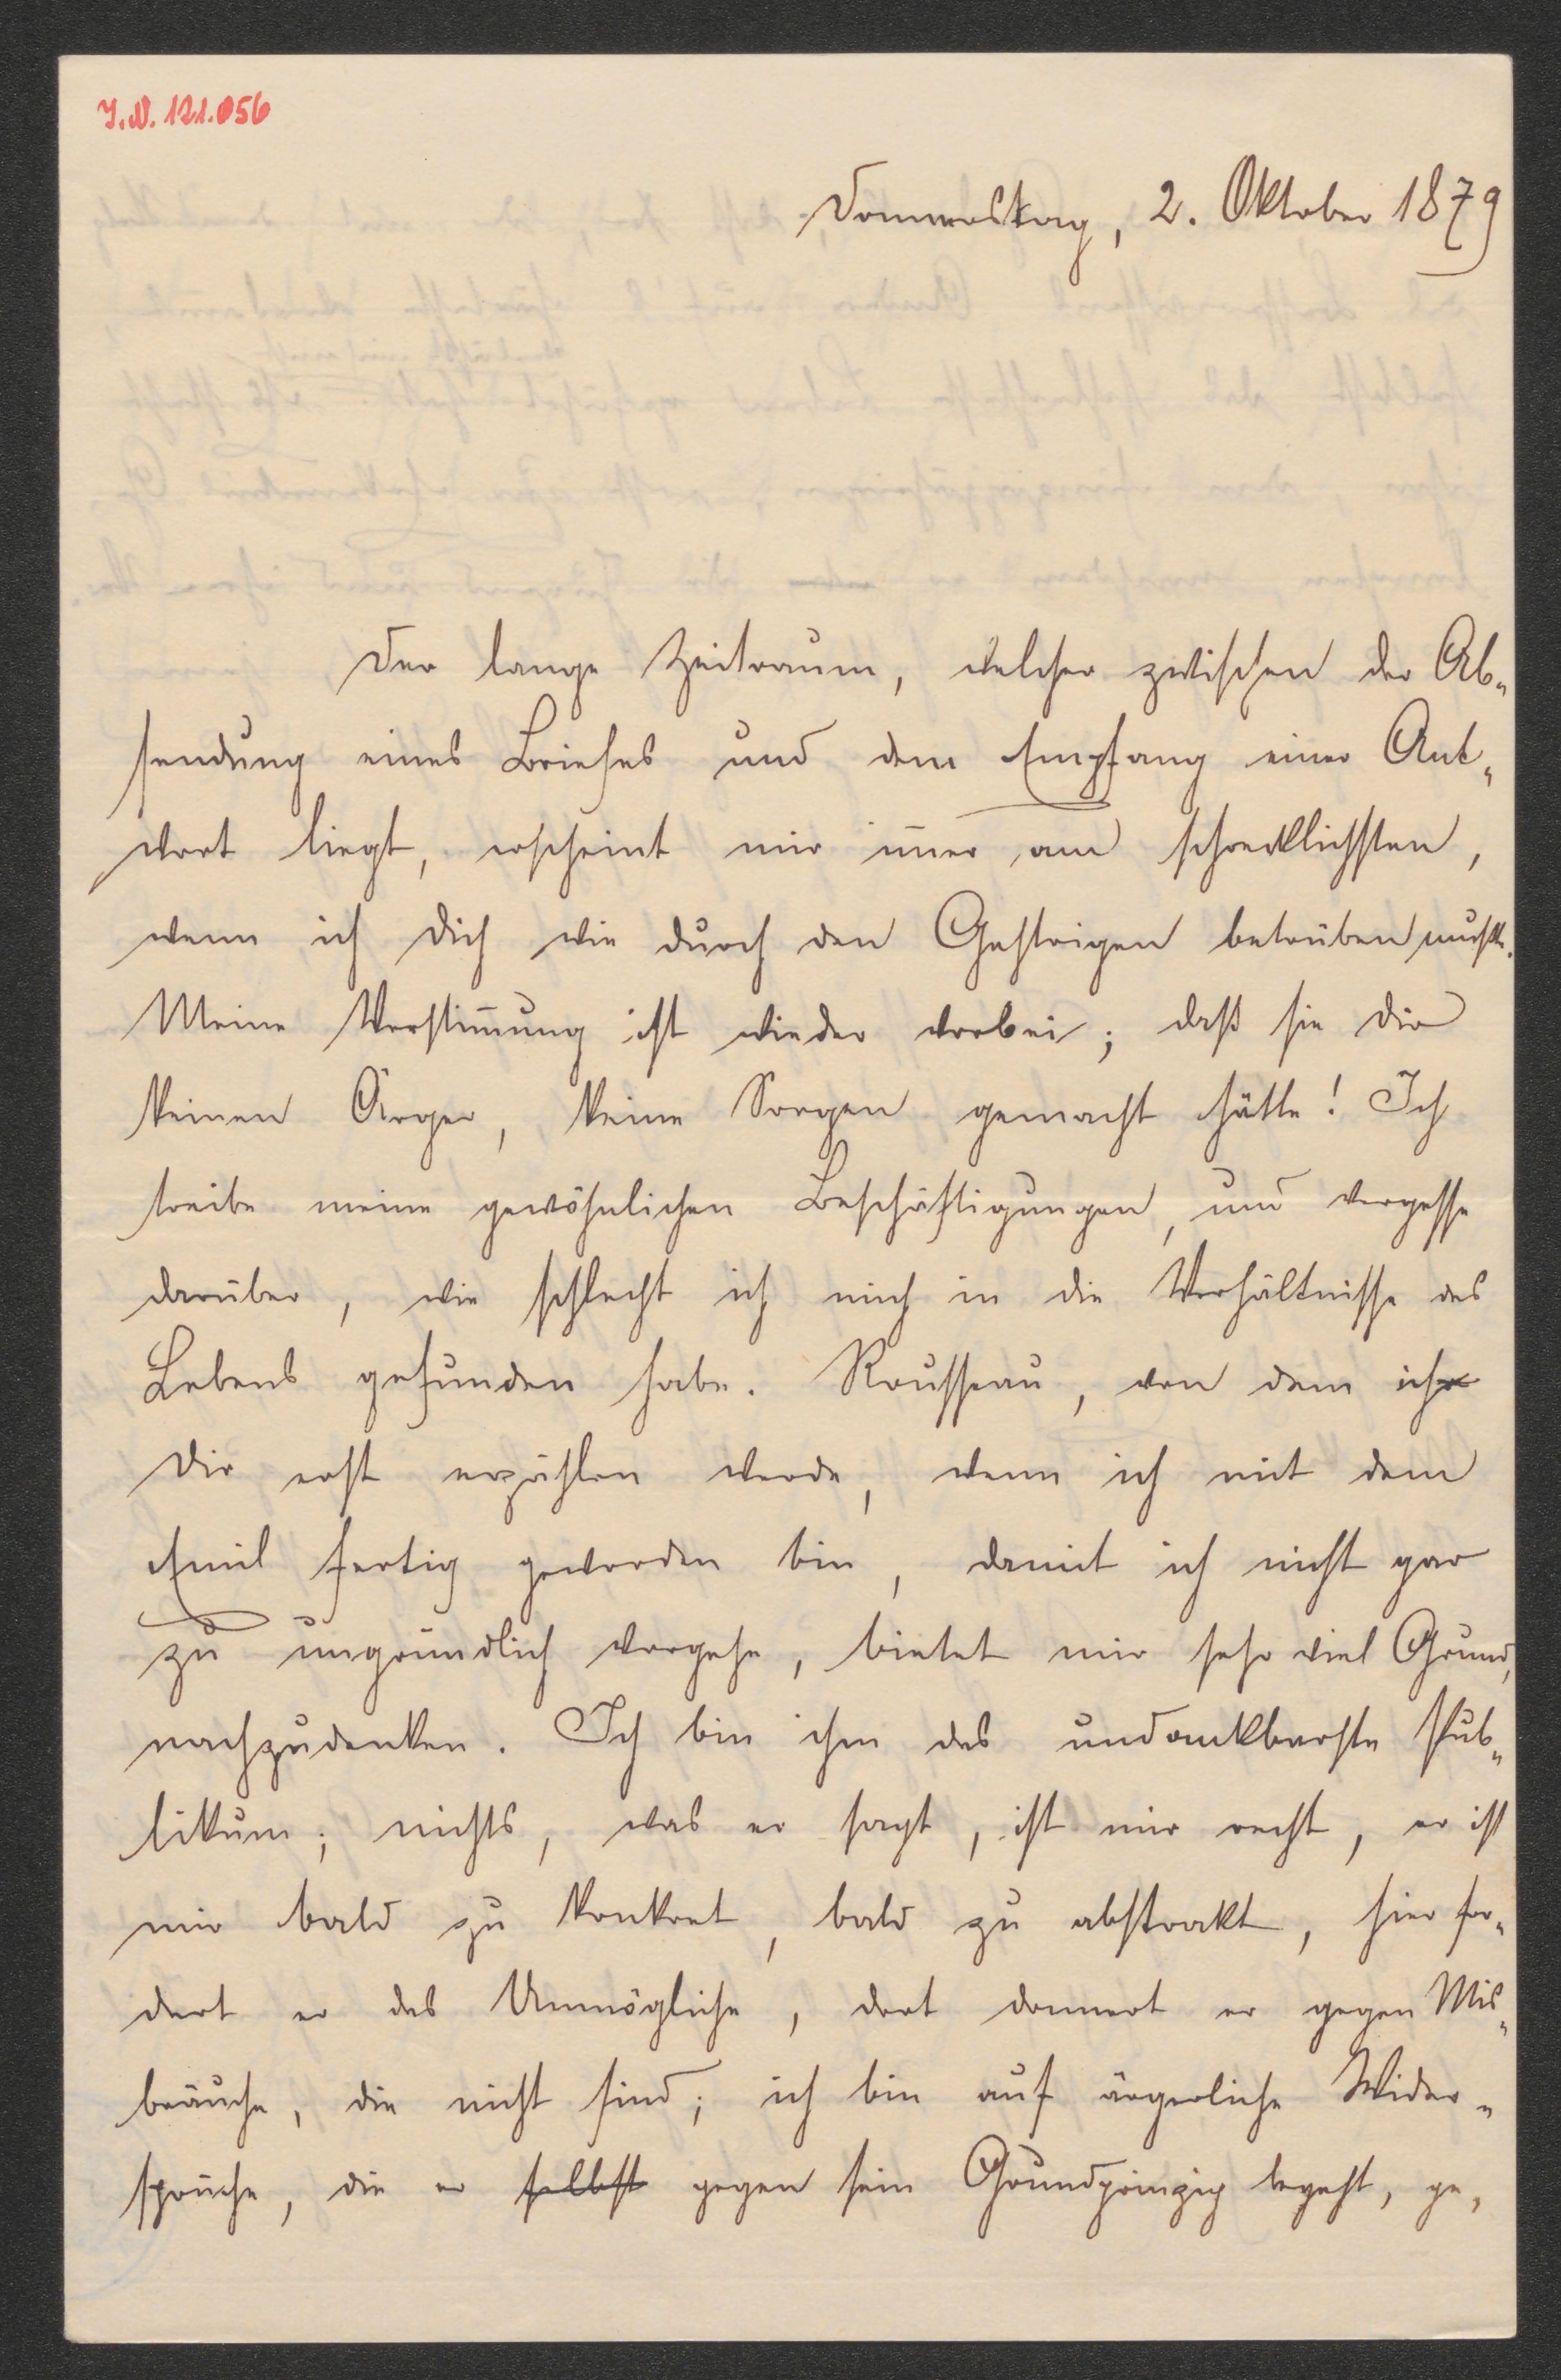 J.N. 121.056
Donnerstag, 2. Oktober 1879
Der lange Zeitraum, welcher zwischen der Ab-
sendung eines Briefes und dem Empfang einer Ant-
wort liegt, erscheint mir im̄er am schrecklichsten,
wenn ich Dich wie durch den Gestrigen betrüben mußte.
Meine Verstim̄ung ist wieder vorbei; daß sie Dir
keinen Ärger, keine Sorgen gemacht hätte! Ich
treibe meine gewöhnlichen Beschäftigungen, und vergesse
darüber, wie schlecht ich mich in die Verhältnisse des
Lebens gefunden habe. Rousseau, von dem ich
Dir erst erzählen werde, wenn ich mit dem
Emil fertig geworden bin, damit ich nicht gar
zu ungründlich vorgehe, bietet mir sehr viel Grund,
nachzudenken. Ich bin ihm das undankbarste Pub-
likum; nichts, was er sagt, ist mir recht, er ist
mir bald zu konkret, bald zu abstrakt, hier for-
dert er das Unmögliche, dort donnert er gegen Mis-
bräuche, die nicht sind; ich bin auf ärgerliche Wider-
sprüche, die er selbst gegen sein Grundprinzip begeht, ge-